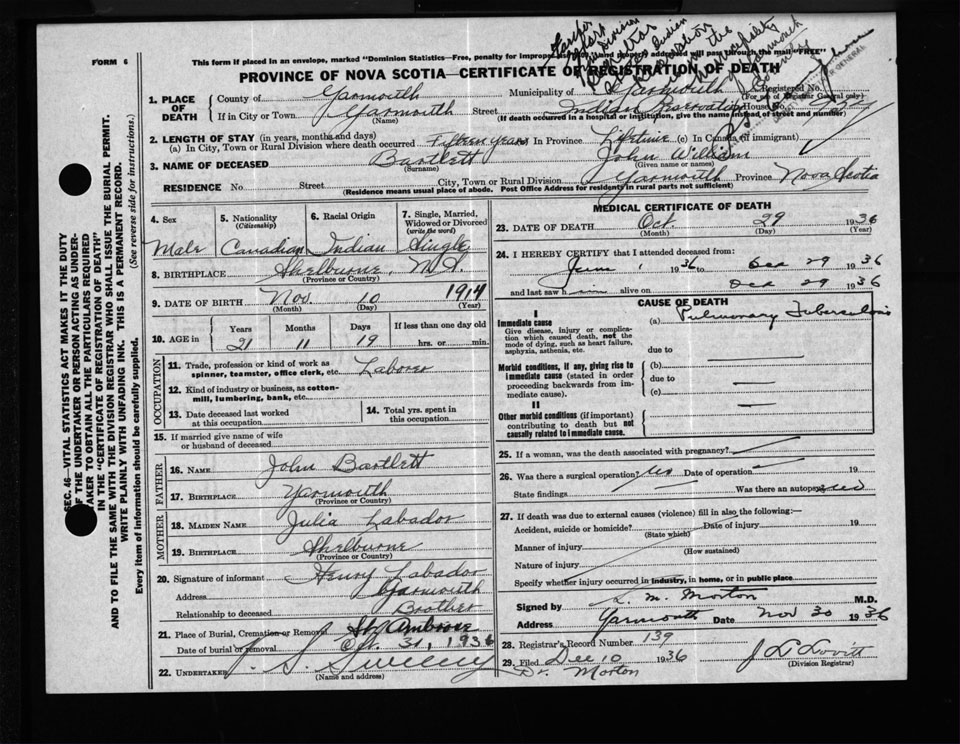 FORM 6
This form if placed in an envelope, marked "Dominion Statistics—Free, penalty for improper use" and properly addressed will pass through the mail "FREE"
PROVINCE OF NOVA SCOTIA—CERTIFICATE OF REGISTRATION OF DEATH
1. PLACE OF DEATH
County of Yarmouth Municipality of Yarmouth Registered No.
(For use of Registrar General only)
If in City or Town Yarmouth Street Indian Reservation House No.
(Name) (If death occurred in a hospital or institution, give the name instead of street and number)
2. LENGTH OF STAY (in years, months and days)
(a) In City, Town or Rural Division where death occurred Fifteen years In Province Lifetime (c) In Canada (if immigrant)
3. NAME OF DECEASED Bartlett John William
(Surname) (Given name or names)
RESIDENCE No. Street City, Town or Rural Division Yarmouth Province Nova Scotia
(Residence means usual place of abode. Post Office Address for residents in rural parts not sufficient)
4. Sex 5. Nationality (Citizenship) 6. Racial Origin 7. Single, Married, Widowed or Divorced (write the word)
Male Canadian Indian Single
8. BIRTHPLACE Shelburne, N.S.
(Province or Country)
9. DATE OF BIRTH Nov. 10 1914
(Month) (Day) (Year)
10. AGE in Years Months Days If less than one day old
21 11 19 hrs. or min.
OCCUPATION
11. Trade, profession or kind of work as spinner, teamster, office clerk, etc. Laborer
12. Kind of industry or business, as cotton-mill, lumbering, bank, etc.
13. Date deceased last worked at this occupation
14. Total yrs. spent in this occupation
15. If married give name of wife or husband of deceased
FATHER
16. NAME John Bartlett
17. BIRTHPLACE Yarmouth
(Province or Country)
MOTHER
18. MAIDEN NAME Julia Labador
19. BIRTHPLACE Shelburne
(Province or Country)
20. Signature of informant Henry Labador
Address Yarmouth
Relationship to deceased Brother
21. Place of Burial, Cremation or Removal St Ambrose
Date of burial or removal Oct. 31, 1936
22. UNDERTAKER J. S. Sweeny
(Name and address)
MEDICAL CERTIFICATE OF DEATH
23. DATE OF DEATH Oct. 29 1936
(Month) (Day) (Year)
24. I HEREBY CERTIFY that I attended deceased from:
June 1 1936 to 29 1936
and last saw him alive on 29 1936
CAUSE OF DEATH
I
Immediate cause (a) Pulmonary Tuberculosis
Give disease, injury or complication which caused death, not the mode of dying, such as heart failure, asphyxia, asthenia, etc.
due to
Morbid conditions, if any, giving rise to immediate cause (stated in order proceeding backwards from immediate cause).
(b)
due to
(c)
II
Other morbid conditions (if important) contributing to death but not causally related to immediate cause.
25. If a woman, was the death associated with pregnancy?
26. Was there a surgical operation? no Date of operation 19
State findings Was there an autopsy?
27. If death was due to external causes (violence) fill in also the following:—
Accident, suicide or homicide? Date of injury 19
(State which)
Manner of injury
(How sustained)
Nature of injury
Specify whether injury occurred in industry, in home, or in public place
Signed by L. M. Morton M.D.
Address Yarmouth Date Nov 30 1936
28. Registrar's Record Number 139
29. Filed Dec 10 1936 J L Lovitt
Dr. Morton (Division Registrar)
SEC. 46—VITAL STATISTICS ACT MAKES IT THE DUTY
OF THE UNDERTAKER OR PERSON ACTING AS UNDER-
TAKER TO OBTAIN ALL THE PARTICULARS REQUIRED
IN THE "CERTIFICATE OF REGISTRATION OF DEATH"
AND TO FILE THE SAME WITH THE DIVISION REGISTRAR WHO SHALL ISSUE THE BURIAL PERMIT.
WRITE PLAINLY WITH UNFADING INK. THIS IS A PERMANENT RECORD.
Every item of information should be carefully supplied. (See reverse side for instructions.)